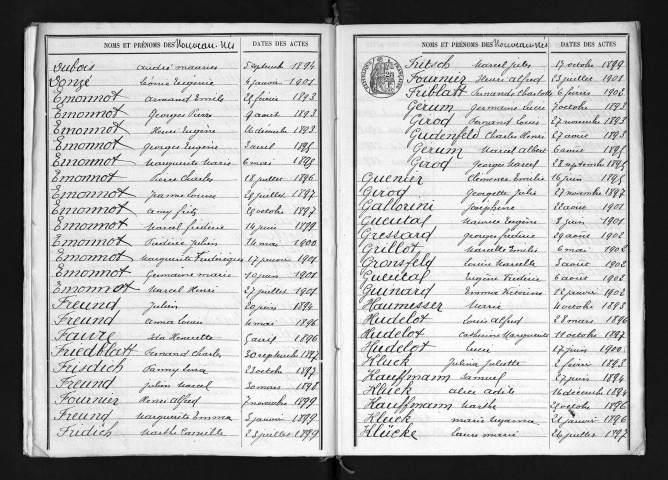 NOMS ET PRÉNOMS DES Nouveau-nés DATES DES ACTES
Dubois André Maurice 5 septemb 1894
Donzé Léonie Eugénie 4 janvier 1901
Emonnot Armand Emile 28 février 1893
Emonnot Georges Pierre 9 août 1893
Emonnot Henri Eugène 16 décembre 1893
Emonnot Georges Eugène 3 avril 1895
Emonnot Marguerite Marie 6 mai 1895
Emonnot Pierre Charles 18 juillet 1896
Emonnot Jeanne Louise 28 juillet 1897
Emonnot 29 octobre 1897
Emonnot Marcel frédéric 14 juin 1899
Emonnot Frédéric Julien 14 mai 1900
Emonnot Marguerite Frédérique 17 janvier 1901
Emonnot Germaine Marie 10 juin 1901
Emonnot Marcel Henri 27 juillet 1901
Freund Julien 20 juin 1894
Freund Anna 4 mai 1896
Faivre Henriette 5 avril 1896
Friedblatt Fernand Charles 30 septembre 1897
Fridich Fanny 23 octobre 1897
Freund Julien Marcel 30 mars 1898
Fournier Henri Alfred 7 novembre 1899
Freund Marguerite Emma 5 janvier 1899
Fridich Marthe Camille 23 juillet 1899
NOMS ET PRÉNOMS DES Nouveau-nés DATES DES ACTES
Fritsch Marcel Jules 17 octobre 1899
Fournier Henri Alfred 23 juillet 1901
Friblatt Fernande Charlotte 6 février 1902
Gerum Germaine Lucie 7 octobre 1893
Girod Fernand Louis 27 novembre 1893
Gudenfeld Charles Henri 27 août 1893
Gerum Marcel Albert 6 avril 1895
Girod Georges Marcel 28 septembre 1895
Guenier Clémence Emilie 16 juin 1895
Girod Georgette Julie 27 novembre 1897
Gallorini Joséphine 22 août 1901
Gueutal Maurice Eugène 8 juin 1901
Gressard Georges frédéric 29 août 1902
Grillot Marcelle Emilie 6 mai 1902
Gronsfeld Louise Marcelle 3 août 1902
Gueutal Eugène Frédéric 6 août 1902
Guinard Emma 12 janvier 1902
Haumesser Marie 4 octobre 1893
Hudelot Louis Alfred 28 mars 1896
Hudelot Catherine Marguerite 11 octobre 1897
Hudelot Lucie 17 juin 1900
Kluck Julina Juliette 2 février 1893
Kauffmann Samuel 27 juin 1894
Kluck Alice Adèle 16 décembre 1894
Kauffmann Marthe 21 octobre 1896
Kluck Marie Suzanne 21 janvier 1896
Klücke Laure Marie 26 juillet 1897